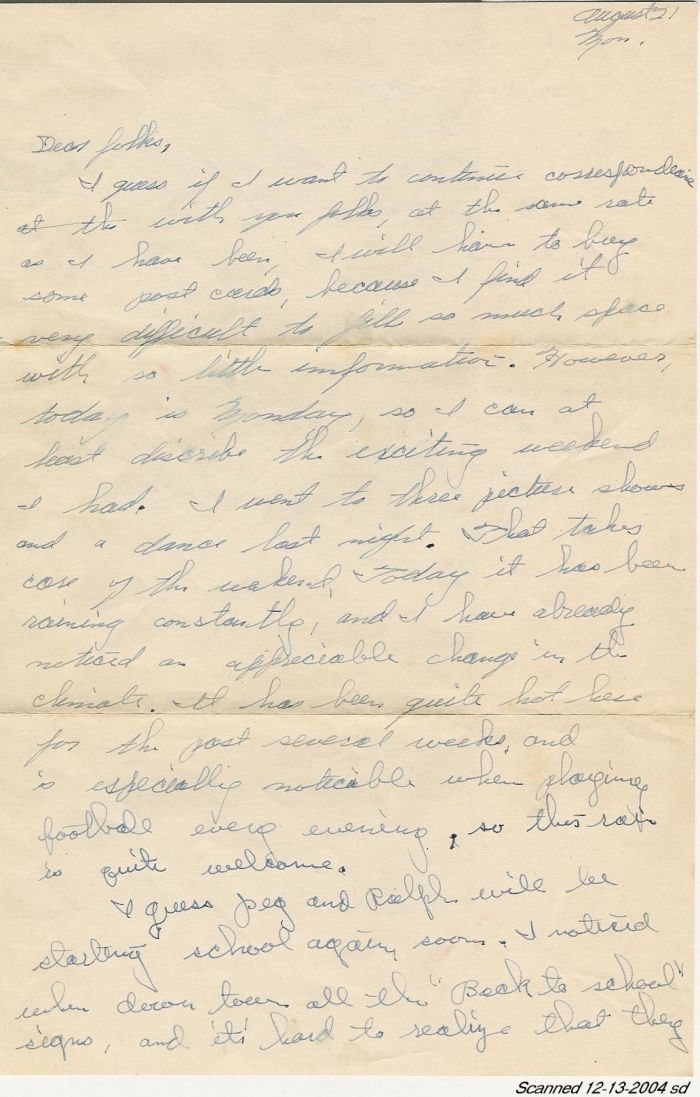 August 21
Mon.
Dear folks,
I guess if I want to continue correspondence
at the with you folks, at the same rate
as I have been, I will have to buy
some post cards, because I find it
very difficult to fill so much space
with so little imformation. However,
today is Monday, so I can at
least discribe the exciting weekend
I had. I went to three picture shows
and a dance last night. That takes
care of the weekend. Today it has been
raining constantly, and I have already
noticed an appreciable change in the
climate. It has been quite hot here
for the past several weeks, and
is especially noticable when playing
football every evening, so this rain
is quite welcome.
I guess Peg and Ralph will be
starting school again soon. I noticed
when down town all the "Back to school"
signs, and it's hard to realize that they
Scanned 12-13-2004 sd